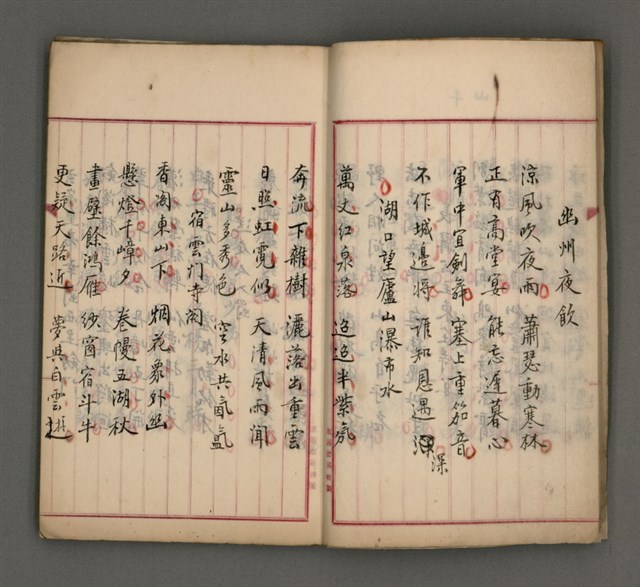 幽州夜飲
涼風吹夜雨 蕭瑟動寒林
正有高堂宴 能忘遲暮心
軍中宜劍舞 塞上重笳音
不作城邊將 誰知恩遇深
湖口望廬山瀑布水
萬丈紅泉落 迢迢半紫氛
奔流下雜樹 灑落出重雲
日照虹霓似 天清風雨聞
靈山多秀色 空水共氤氳
宿雲门寺阁
香阁東山下 烟花象外幽
懸燈千嶂夕 卷幔五湖秋
畫壁餘鴻雁 纱窗宿斗牛
更疑天路近 夢與白雲遊